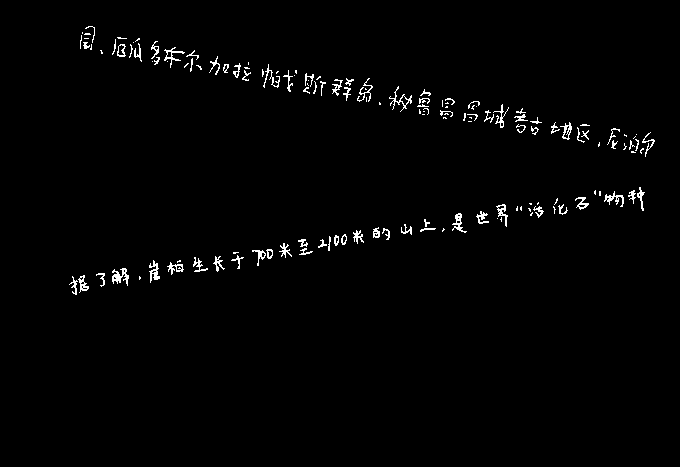 园、厄瓜多尔加拉帕戈斯群岛、秘鲁昌昌城考古地区、尼泊尔
据了解，崖柏生长于700米至2100米的山上，是世界“活化石”物种